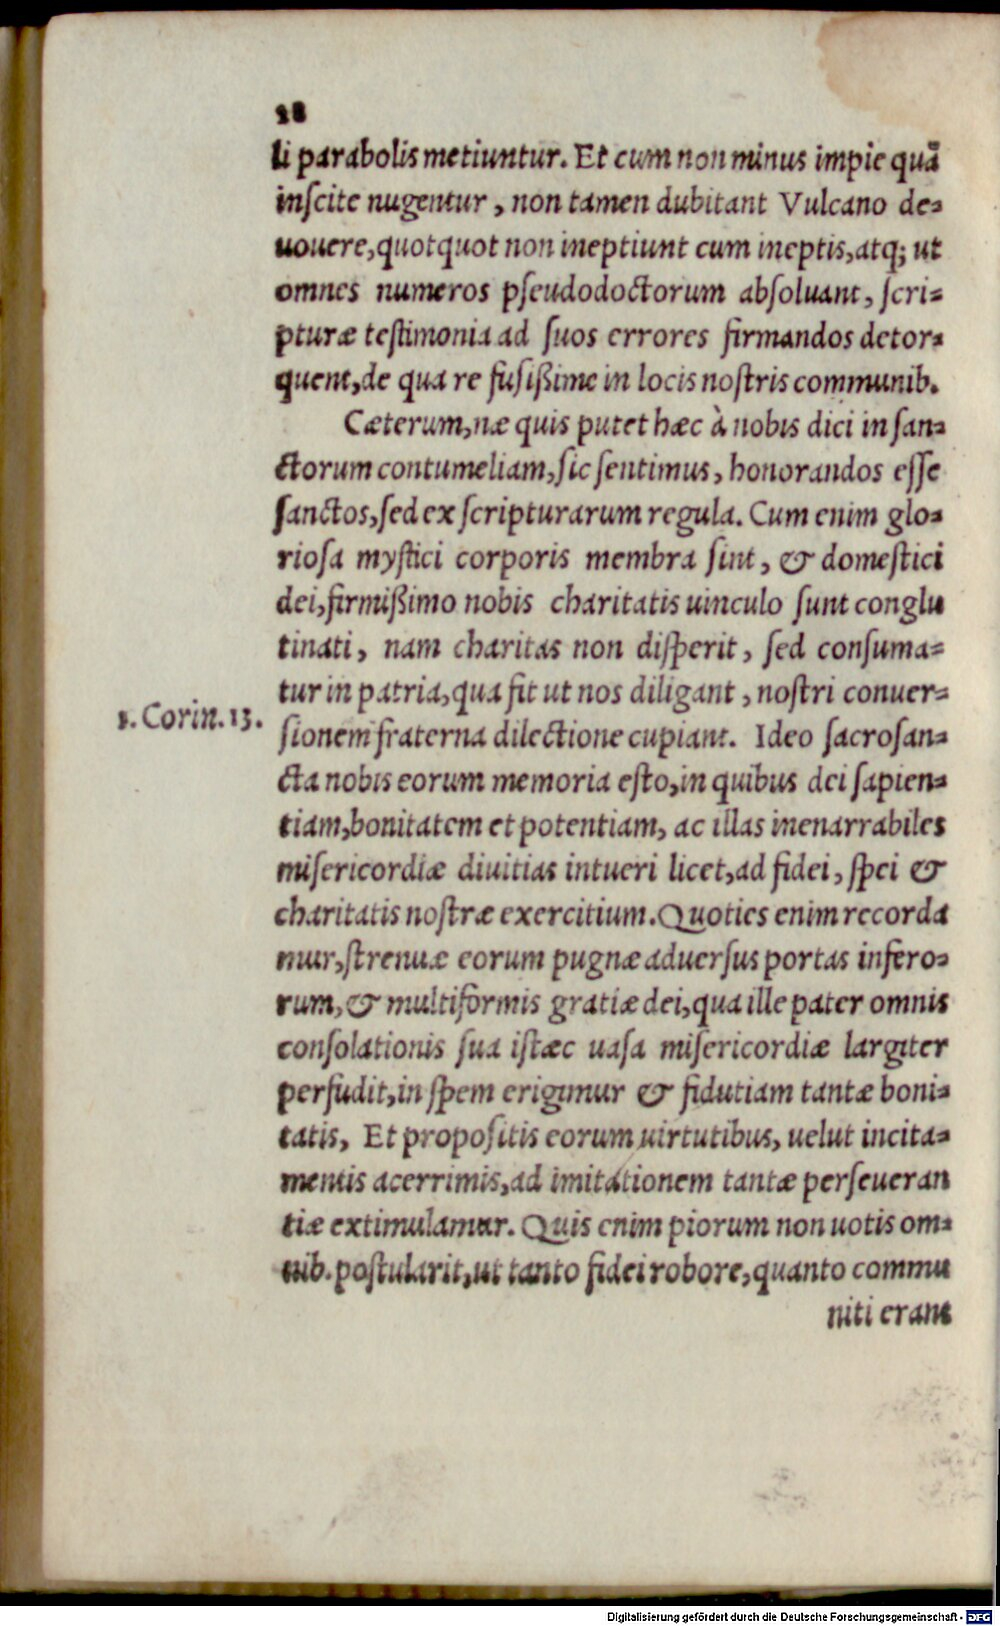 18
li parabolis metiuntur. Et cum non minus impie quã
inſcite nugentur, non tamen dubitant Vulcano de=
uouere, quotquot non ineptiunt cum ineptis, atq; ut
omnes numeros pſeudodoctorum abſoluant, ſcri=
pturæ teſtimonia ad ſuos errores firmandos detor=
quent, de qua re fuſiſsime in locis noſtris communib.
Cæterum, næ quis putet hæc à nobis dici in ſan=
ctorum contumeliam, ſic ſentimus, honorandos eſſe
ſanctos, ſed ex ſcripturarum regula. Cum enim glo=
rioſa myſtici corporis membra ſint, & domeſtici
dei, firmißimo nobis charitatis uinculo ſunt conglu
tinati, nam charitas non diſperit, ſed conſuma=
tur in patria, qua fit ut nos diligant, noſtri conuer=
1. Corin. 13.
ſionem fraterna dilectione cupiant. Ideo ſacroſan=
cta nobis eorum memoria eſto, in quibus dei ſapien=
tiam, bonitatem et potentiam, ac illas inenarrabiles
miſericordiæ diuitias intueri licet, ad fidei, ſpei &
charitatis noſtræ exercitium. Quoties enim recorda
mur, ſtrenuæ eorum pugnæ aduerſus portas infero=
rum, & multiformis gratiæ dei, qua ille pater omnis
conſolationis ſua iſtæc uaſa miſericordiæ largiter
perfudit, in ſpem erigimur & fidutiam tantæ boni=
tatis, Et propoſitis eorum uirtutibus, uelut incita=
mentis acerrimis, ad imitationem tantæ perſeueran
tiæ extimulamur. Quis enim piorum non uotis om=
nib. poſtularit, ut tanto fidei robore, quanto commu
niti erant
Digitalisierung gefördert durch die Deutsche Forschungsgemeinschaft - DFG